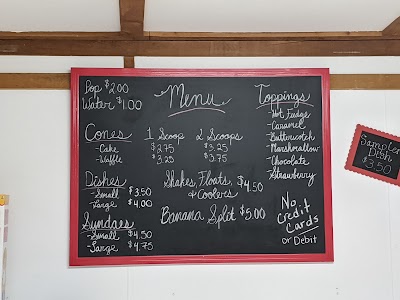 Pop $2.00
Water $1.00
Menu
Cones 1 Scoop 2 Scoops
-Cake $2.75 $3.25
-Waffle $3.25 $3.75
Dishes
-Small $3.50
-Large $4.00
Sundaes
-Small $4.50
-Large $4.75
Shakes, Floats, & Coolers $4.50
Banana Split $5.00
Toppings
-Hot Fudge
-Caramel
-Butterscotch
-Marshmallow
-Chocolate
-Strawberry
No
Credit
Cards
or Debit
Sampler
Dish
$3.50